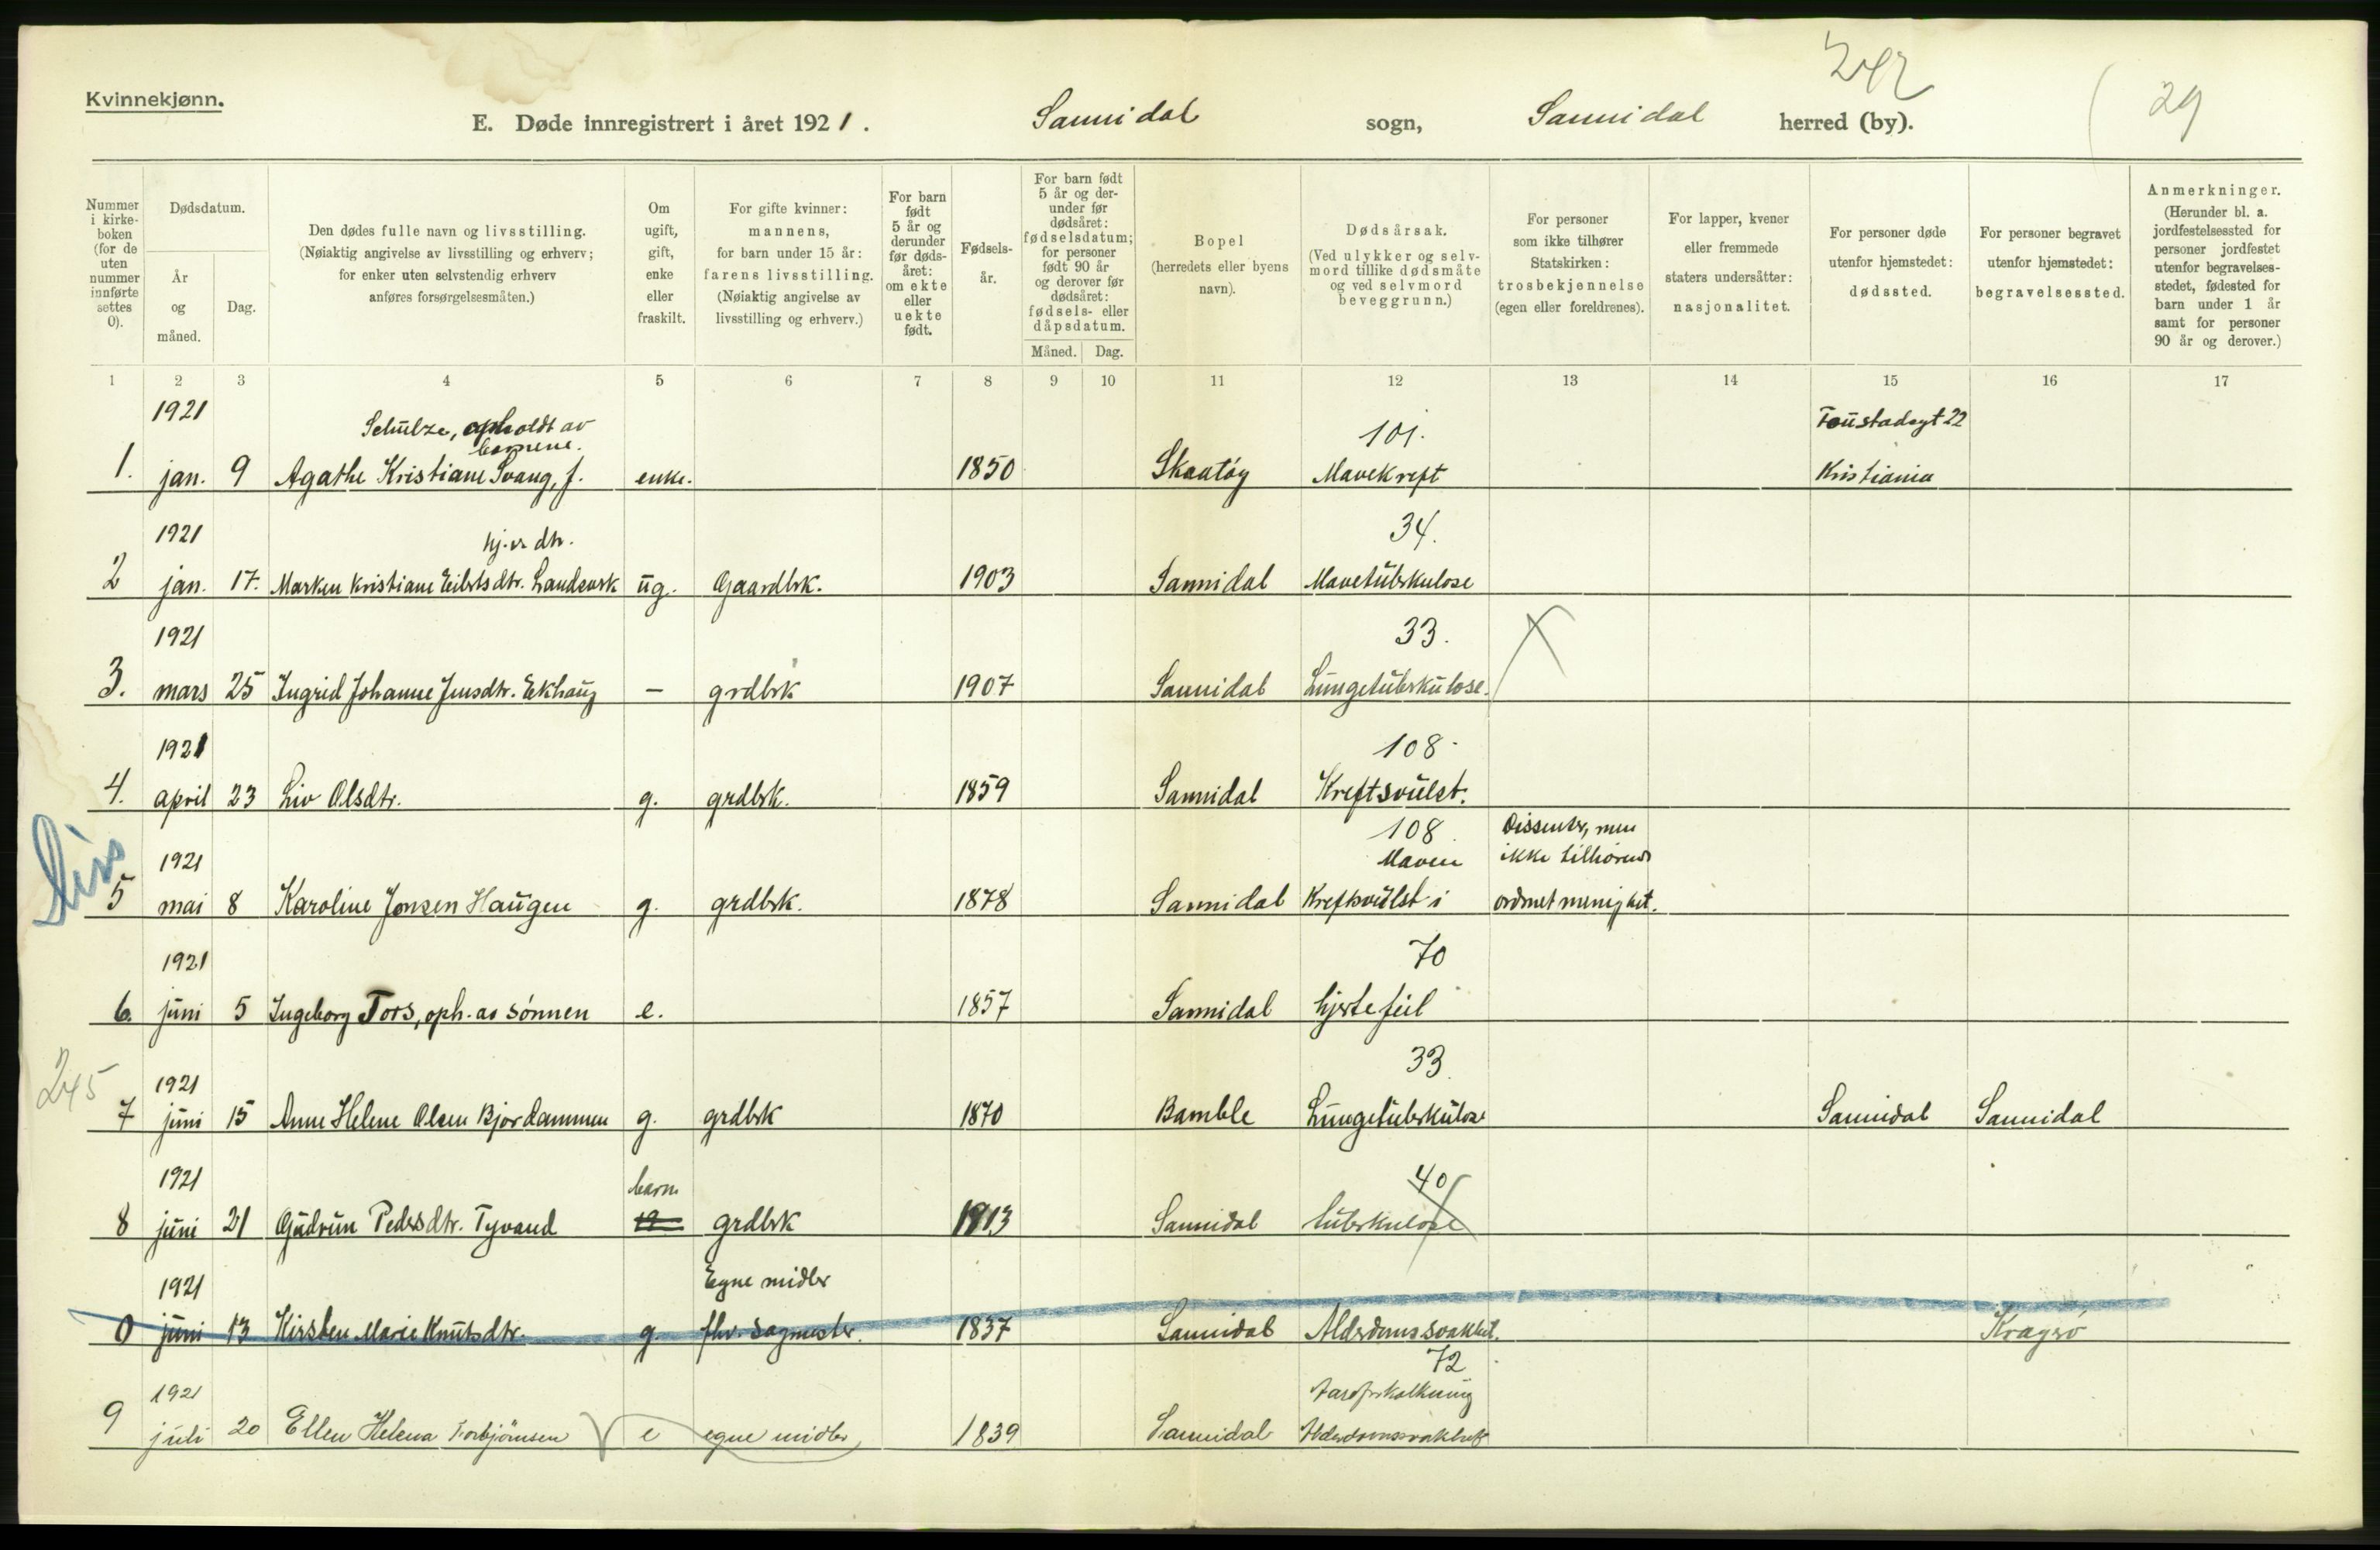 Kvinnekjønn.
242
29
E. Døde innregistrert i året 1921. Sannidal sogn, Sannidal herred (by).
Nummer i kirke-boken (for de uten nummer innførte settes 0).
Dødsdatum.
År og måned.
Dag.
Den dødes fulle navn og livsstilling.
(Nøiaktig angivelse av livsstilling og erhverv;
for enker uten selvstendig erhverv
anføres forsørgelsesmåten.)
Om ugift, gift, enke eller fraskilt.
For gifte kvinner:
mannens,
for barn under 15 år:
farens livsstilling.
(Nøiaktig angivelse av
livsstilling og erhverv.)
For barn født 5 år og derunder før døds-året: om ekte eller uekte født.
Fødsels-år.
For barn født 5 år og der-under før dødsåret: fødselsdatum; for personer født 90 år og derover før dødsåret: fødsels- eller dåpsdatum.
Måned. Dag.
Bopel
(herredets eller byens
navn).
Dødsårsak.
(Ved ulykker og selv-
mord tillike dødsmåte
og ved selvmord
beveggrunn.)
For personer
som ikke tilhører
Statskirken:
trosbekjennelse
(egen eller foreldrenes).
For lapper, kvener
eller fremmede
staters undersåtter:
nasjonalitet.
For personer døde
utenfor hjemstedet:
dødssted.
For personer begravet
utenfor hjemstedet:
begravelsessted.
Anmerkninger.
(Herunder bl. a.
jordfestelsessted for
personer jordfestet
utenfor begravelses-
stedet, fødested for
barn under 1 år
samt for personer
90 år og derover.)
1 2 3 4 5 6 7 8 9 10 11 12 13 14 15 16 17
1921 Schulze, opholdt av 101. 22
barnene.
1. jan. 9 Agathe Kristiane Svang, f. enke. 1850 Skaatøy Mavekreft Kristiania
1921 hj.v. dtr. 34.
2 jan. 17. Marken Kristiane Eilertsdtr. Landsverk ug. Gaardbrk. 1903 Sannidal Mavetuberkulose
1921 33.
3. mars 25 Ingrid Johanne Jensdtr. Ekhaug — grdbrk 1907 Sannidal Lungetuberkulose.
1921 108.
4. april 23 Liv Olsdtr. g. grdbrk. 1859 Sannidal Kreftsvulst.
108. Dissenter, men
Diss 1921 Maven ikke tilhørende
5 mai 8 Karoline Jensen Haugen g. grdbrk. 1878 Sannidal Kreftsvulst i ordnet menighet.
1921 70
6. juni 5 Ingeborg Tors, oph. av sønnen e. 1857 Sannidal hjertefeil
245 1921 33
7 juni 15 Anne Helene Olsen Bjordammen g. grdbrk 1870 Bamble Lungetuberkulose Sannidal Sannidal
1921 barn 40
8 juni 21 Gudrun Pedersdtr. Tyvand grdbrk 1913 Sannidal tuberkulose
1921 Egne midler
0 juni 13 Kirsten Marie Knutsdtr. g. fhv. sagmester. 1837 Sannidal Alderdomssvakhet. Kragerø
72
1921 Aareforkalkning
9 juli 20 Ellen Helena Torbjörnsen e egne midler 1839 Sannidal Alderdomssvakhet